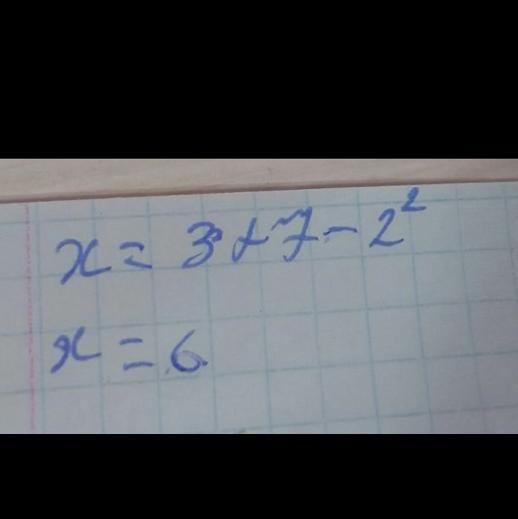 x = 3 + 7 - 2²
x = 6